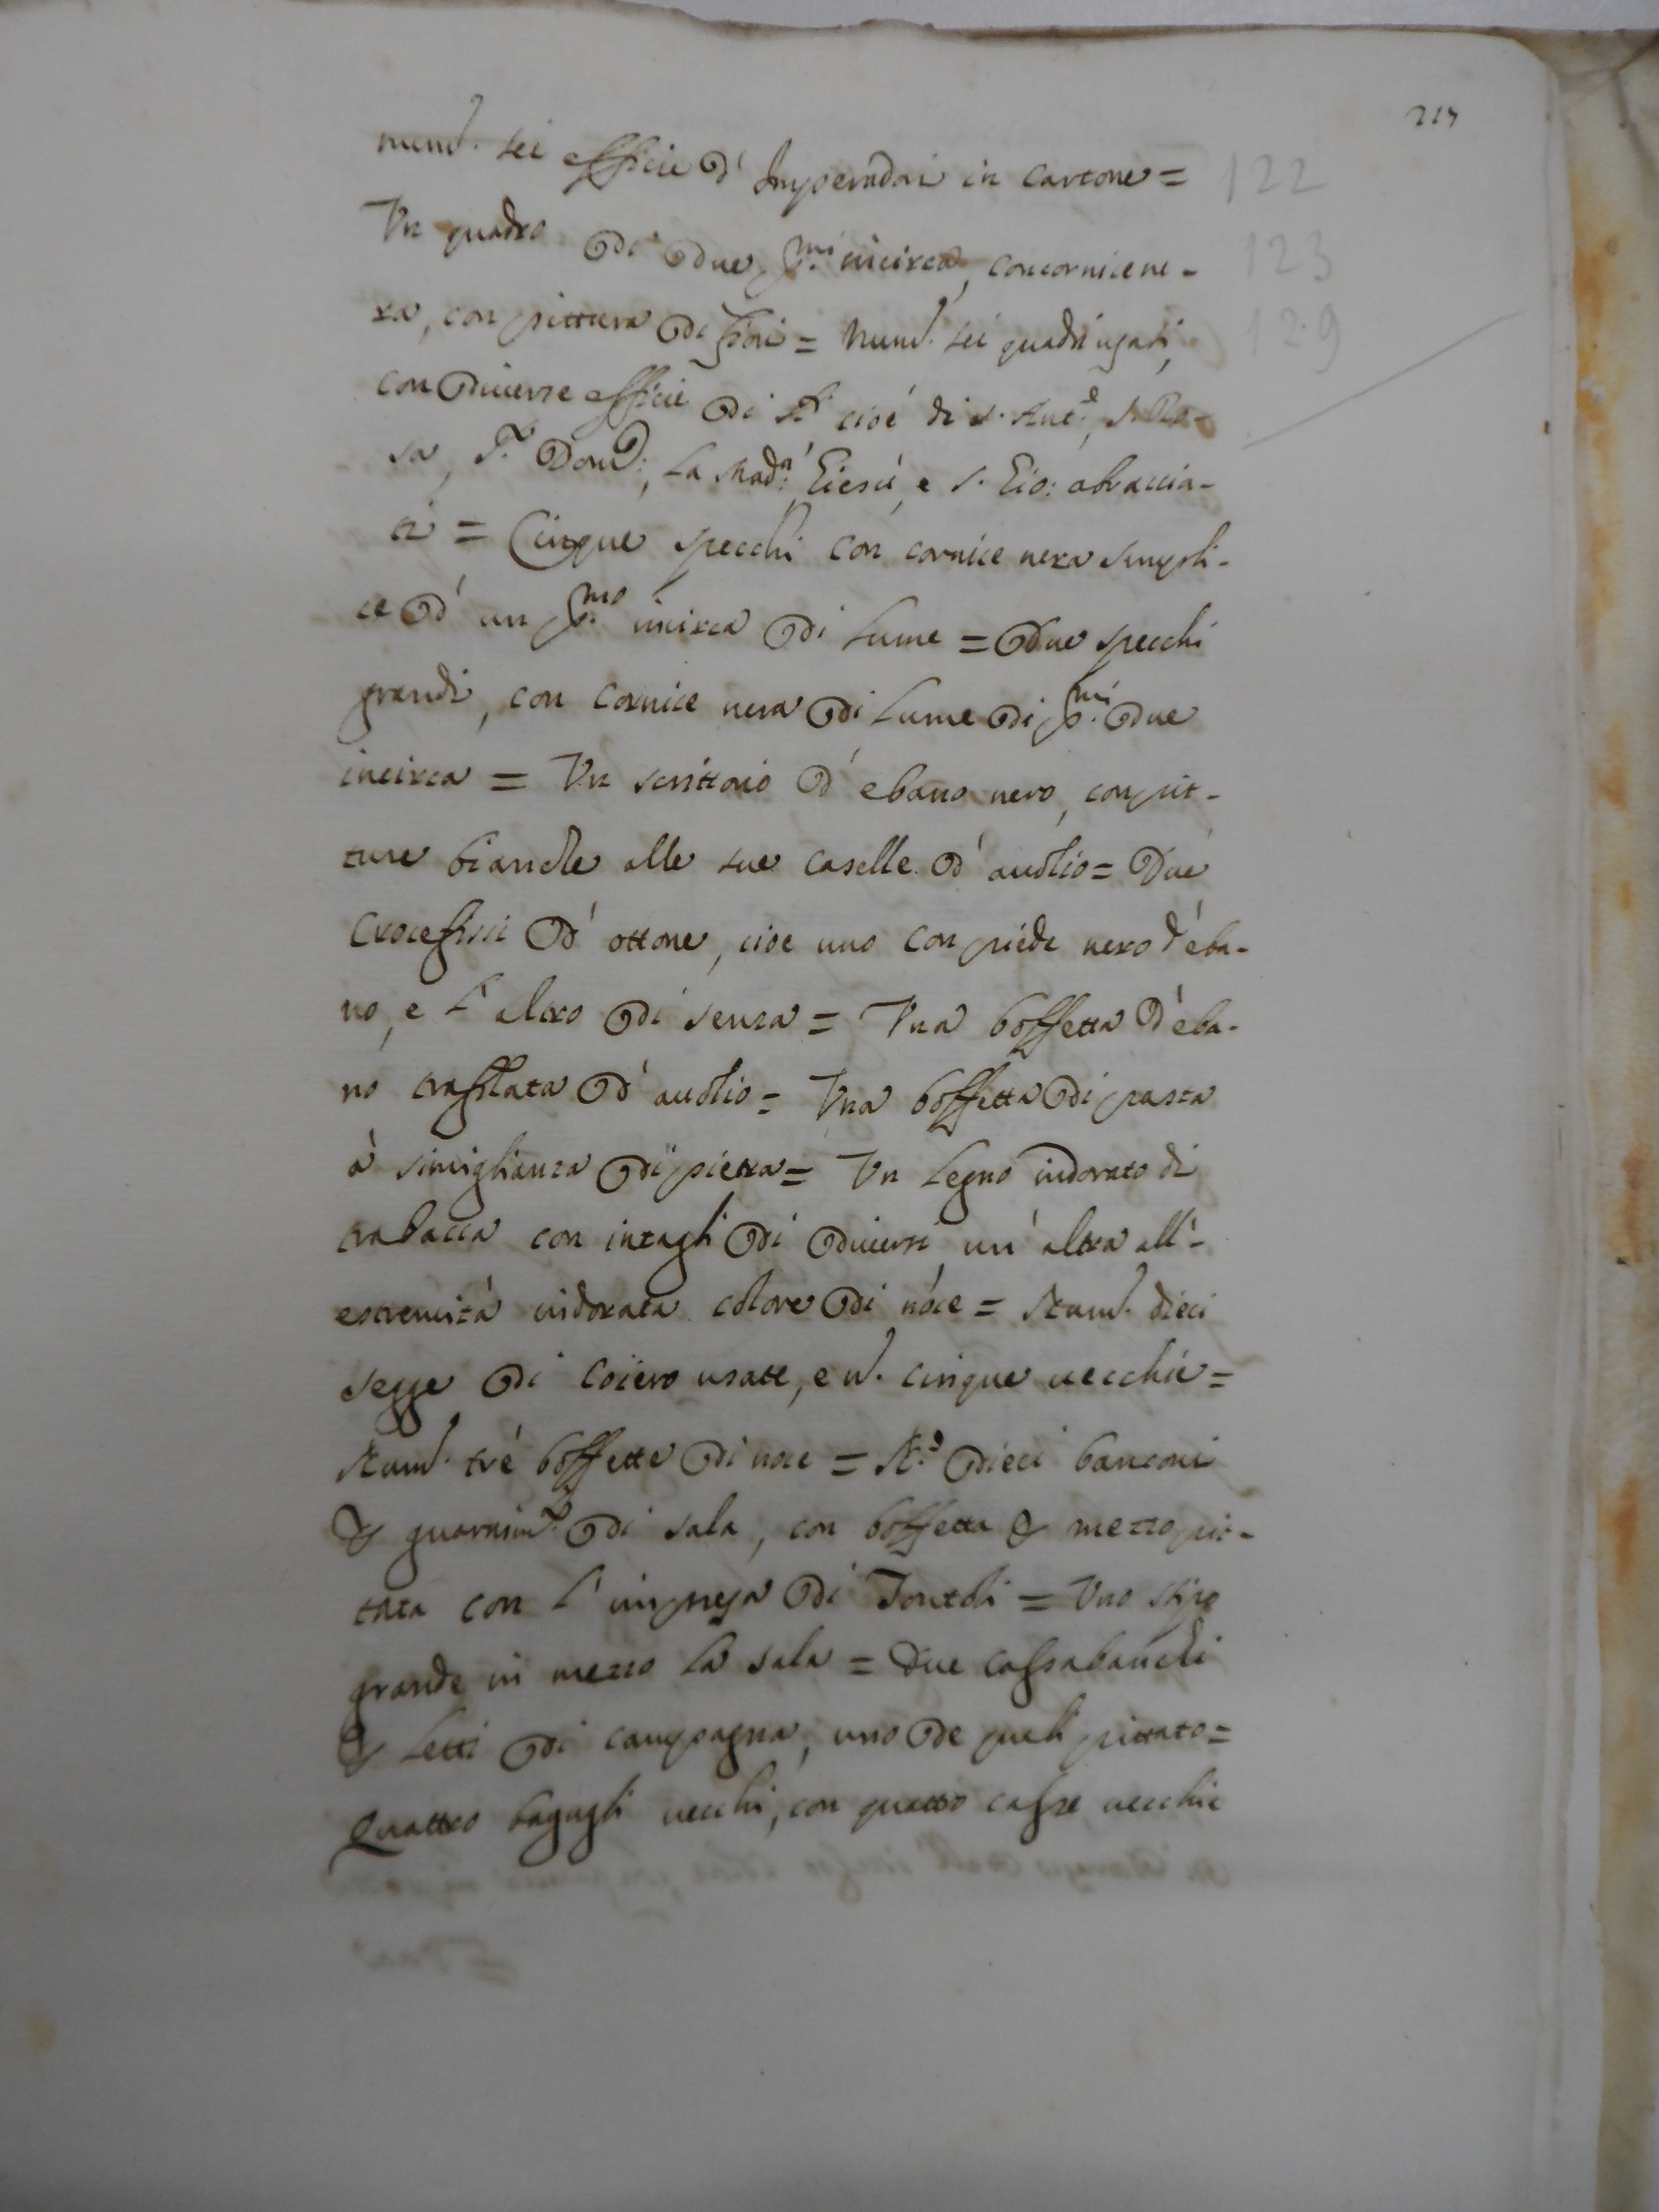 217
num.º sei efficie d' Imperadori in cartone = 122
Un quadro di due p.mi incirca, con cornice ne- 123
ra, con pittura di fiori = Num.º sei quadri usati, 129
con diverse efficie di S.ti cioé di S. Ant.º, S. Ro-
sa, S.to Dom.º, La Mad.a, Giesù, e S. Gio: abraccia-
ti = Cinque specchi con cornice nera simpli-
ce d' un p.mo incirca di lume = Due specchi
grandi, con cornice nera di lume di p.mi due
incirca = Un scrittorio d' ebano nero, con pit-
ture bianche alle sue caselle d' auolio = Due
Crocefissi d' ottone, cioe uno con piede nero d' éba-
no, e l' altro di senza = Una boffetta d' eba-
no trafilata d' auolio = Una boffetta di pasta
à simiglianza di pietra = Un legno indorato di
trabacca con intagli di diuersi, un' altra all'-
estremità indorata colore di nóce = Num.º dieci
segge di coiero usate, e n.º cinque uecchie =
Num.º tré boffette di noce = N.º dieci banconi
p guarnim.to di sala, con boffetta p mezzo pit-
tata con l' impresa di Tontoli = Uno stipo
grande in mezzo la sala = due cassabanchi
p letti di campagna, uno de queli pittato =
Quattro bagugli uecchi, con quatto casse uecchie